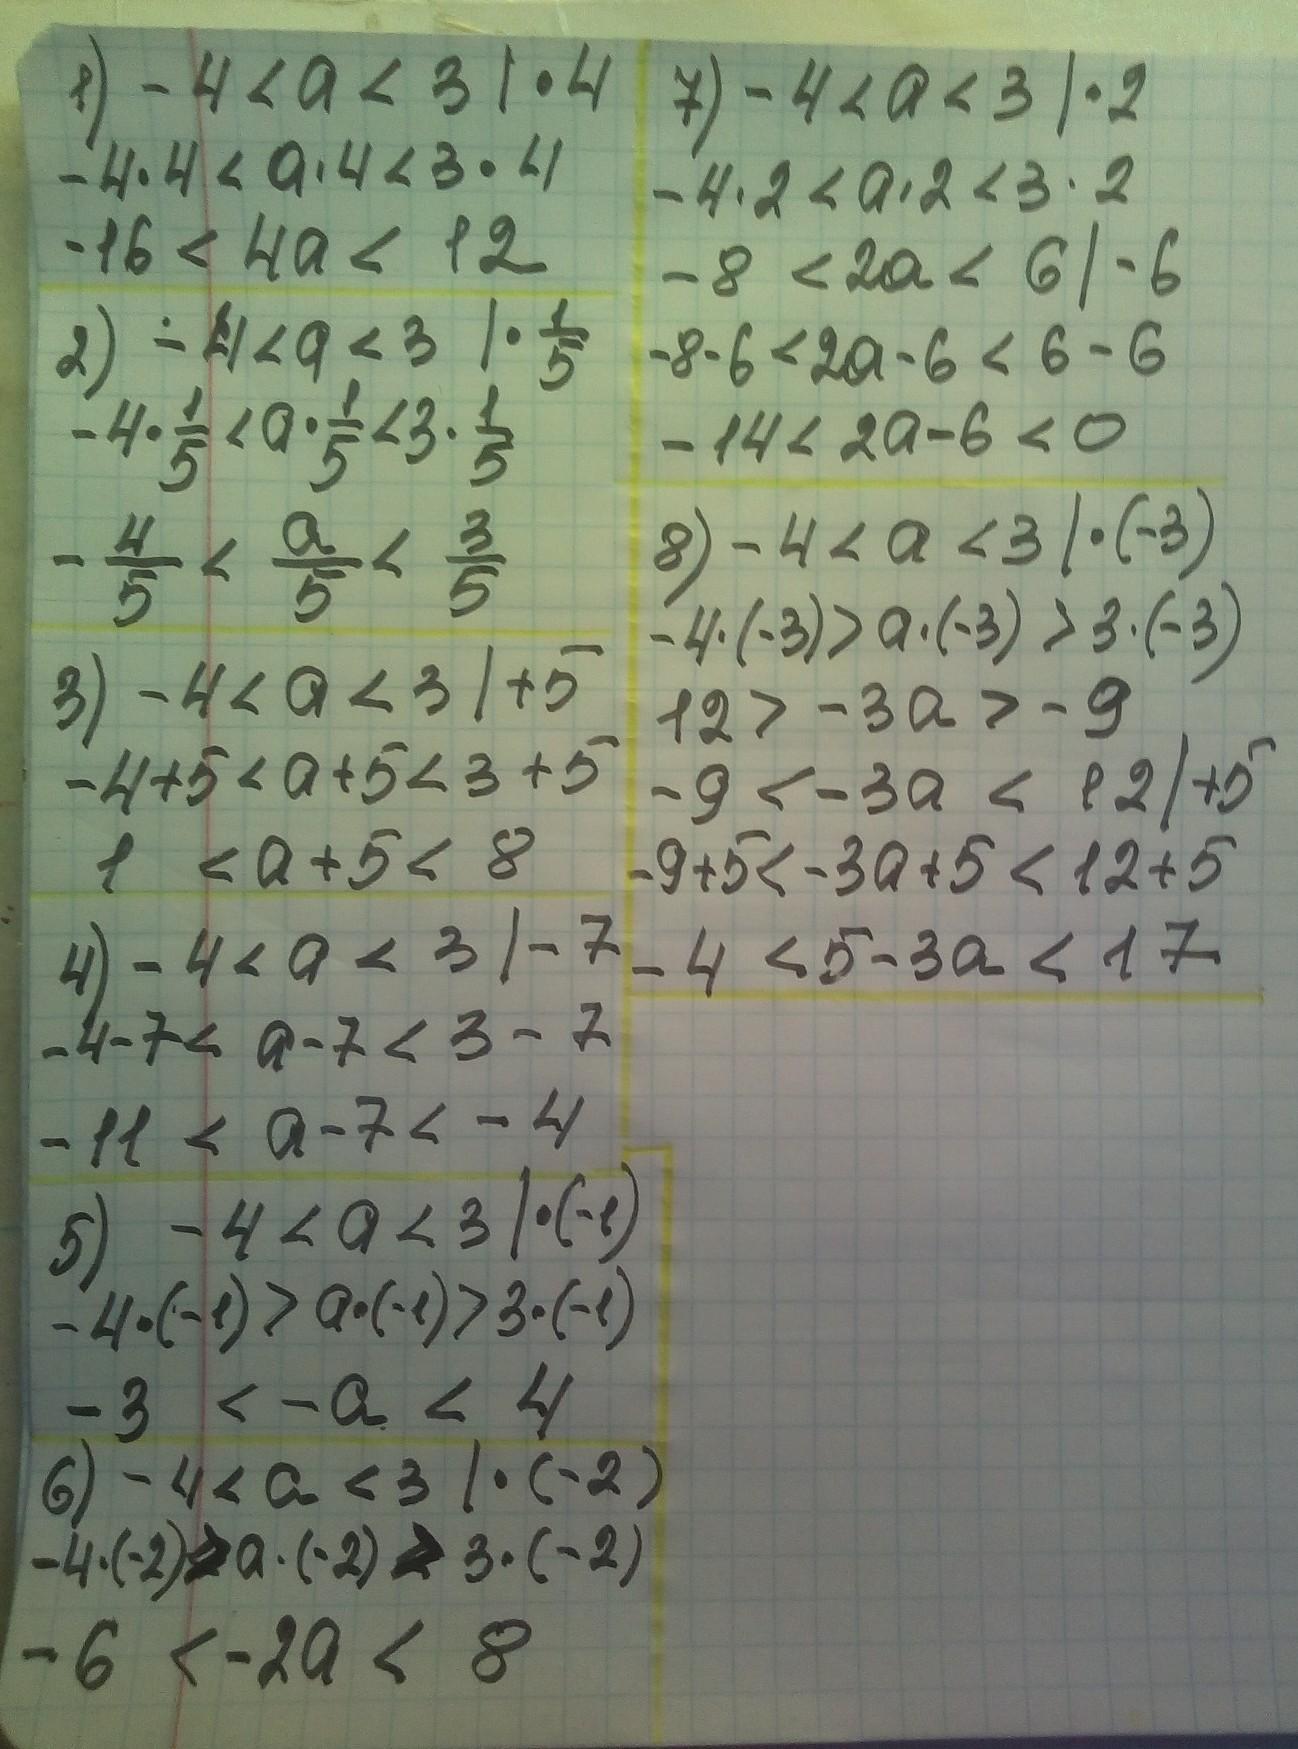 1) -4 < a < 3 | · 4
-4·4 < a·4 < 3·4
-16 < 4a < 12
2) -4 < a < 3 | · 1/5
-4·1/5 < a·1/5 < 3·1/5
-4/5 < a/5 < 3/5
3) -4 < a < 3 | +5
-4+5 < a+5 < 3+5
1 < a+5 < 8
4) -4 < a < 3 | -7
-4-7 < a-7 < 3-7
-11 < a-7 < -4
5) -4 < a < 3 | ·(-1)
-4·(-1) > a·(-1) > 3·(-1)
-3 < -a < 4
6) -4 < a < 3 | ·(-2)
-4·(-2) > a·(-2) > 3·(-2)
-6 < -2a < 8
7) -4 < a < 3 | · 2
-4·2 < a·2 < 3·2
-8 < 2a < 6 | -6
-8-6 < 2a-6 < 6-6
-14 < 2a-6 < 0
8) -4 < a < 3 | ·(-3)
-4·(-3) > a·(-3) > 3·(-3)
12 > -3a > -9
-9 < -3a < 12 | +5
-9+5 < -3a+5 < 12+5
-4 < 5-3a < 17